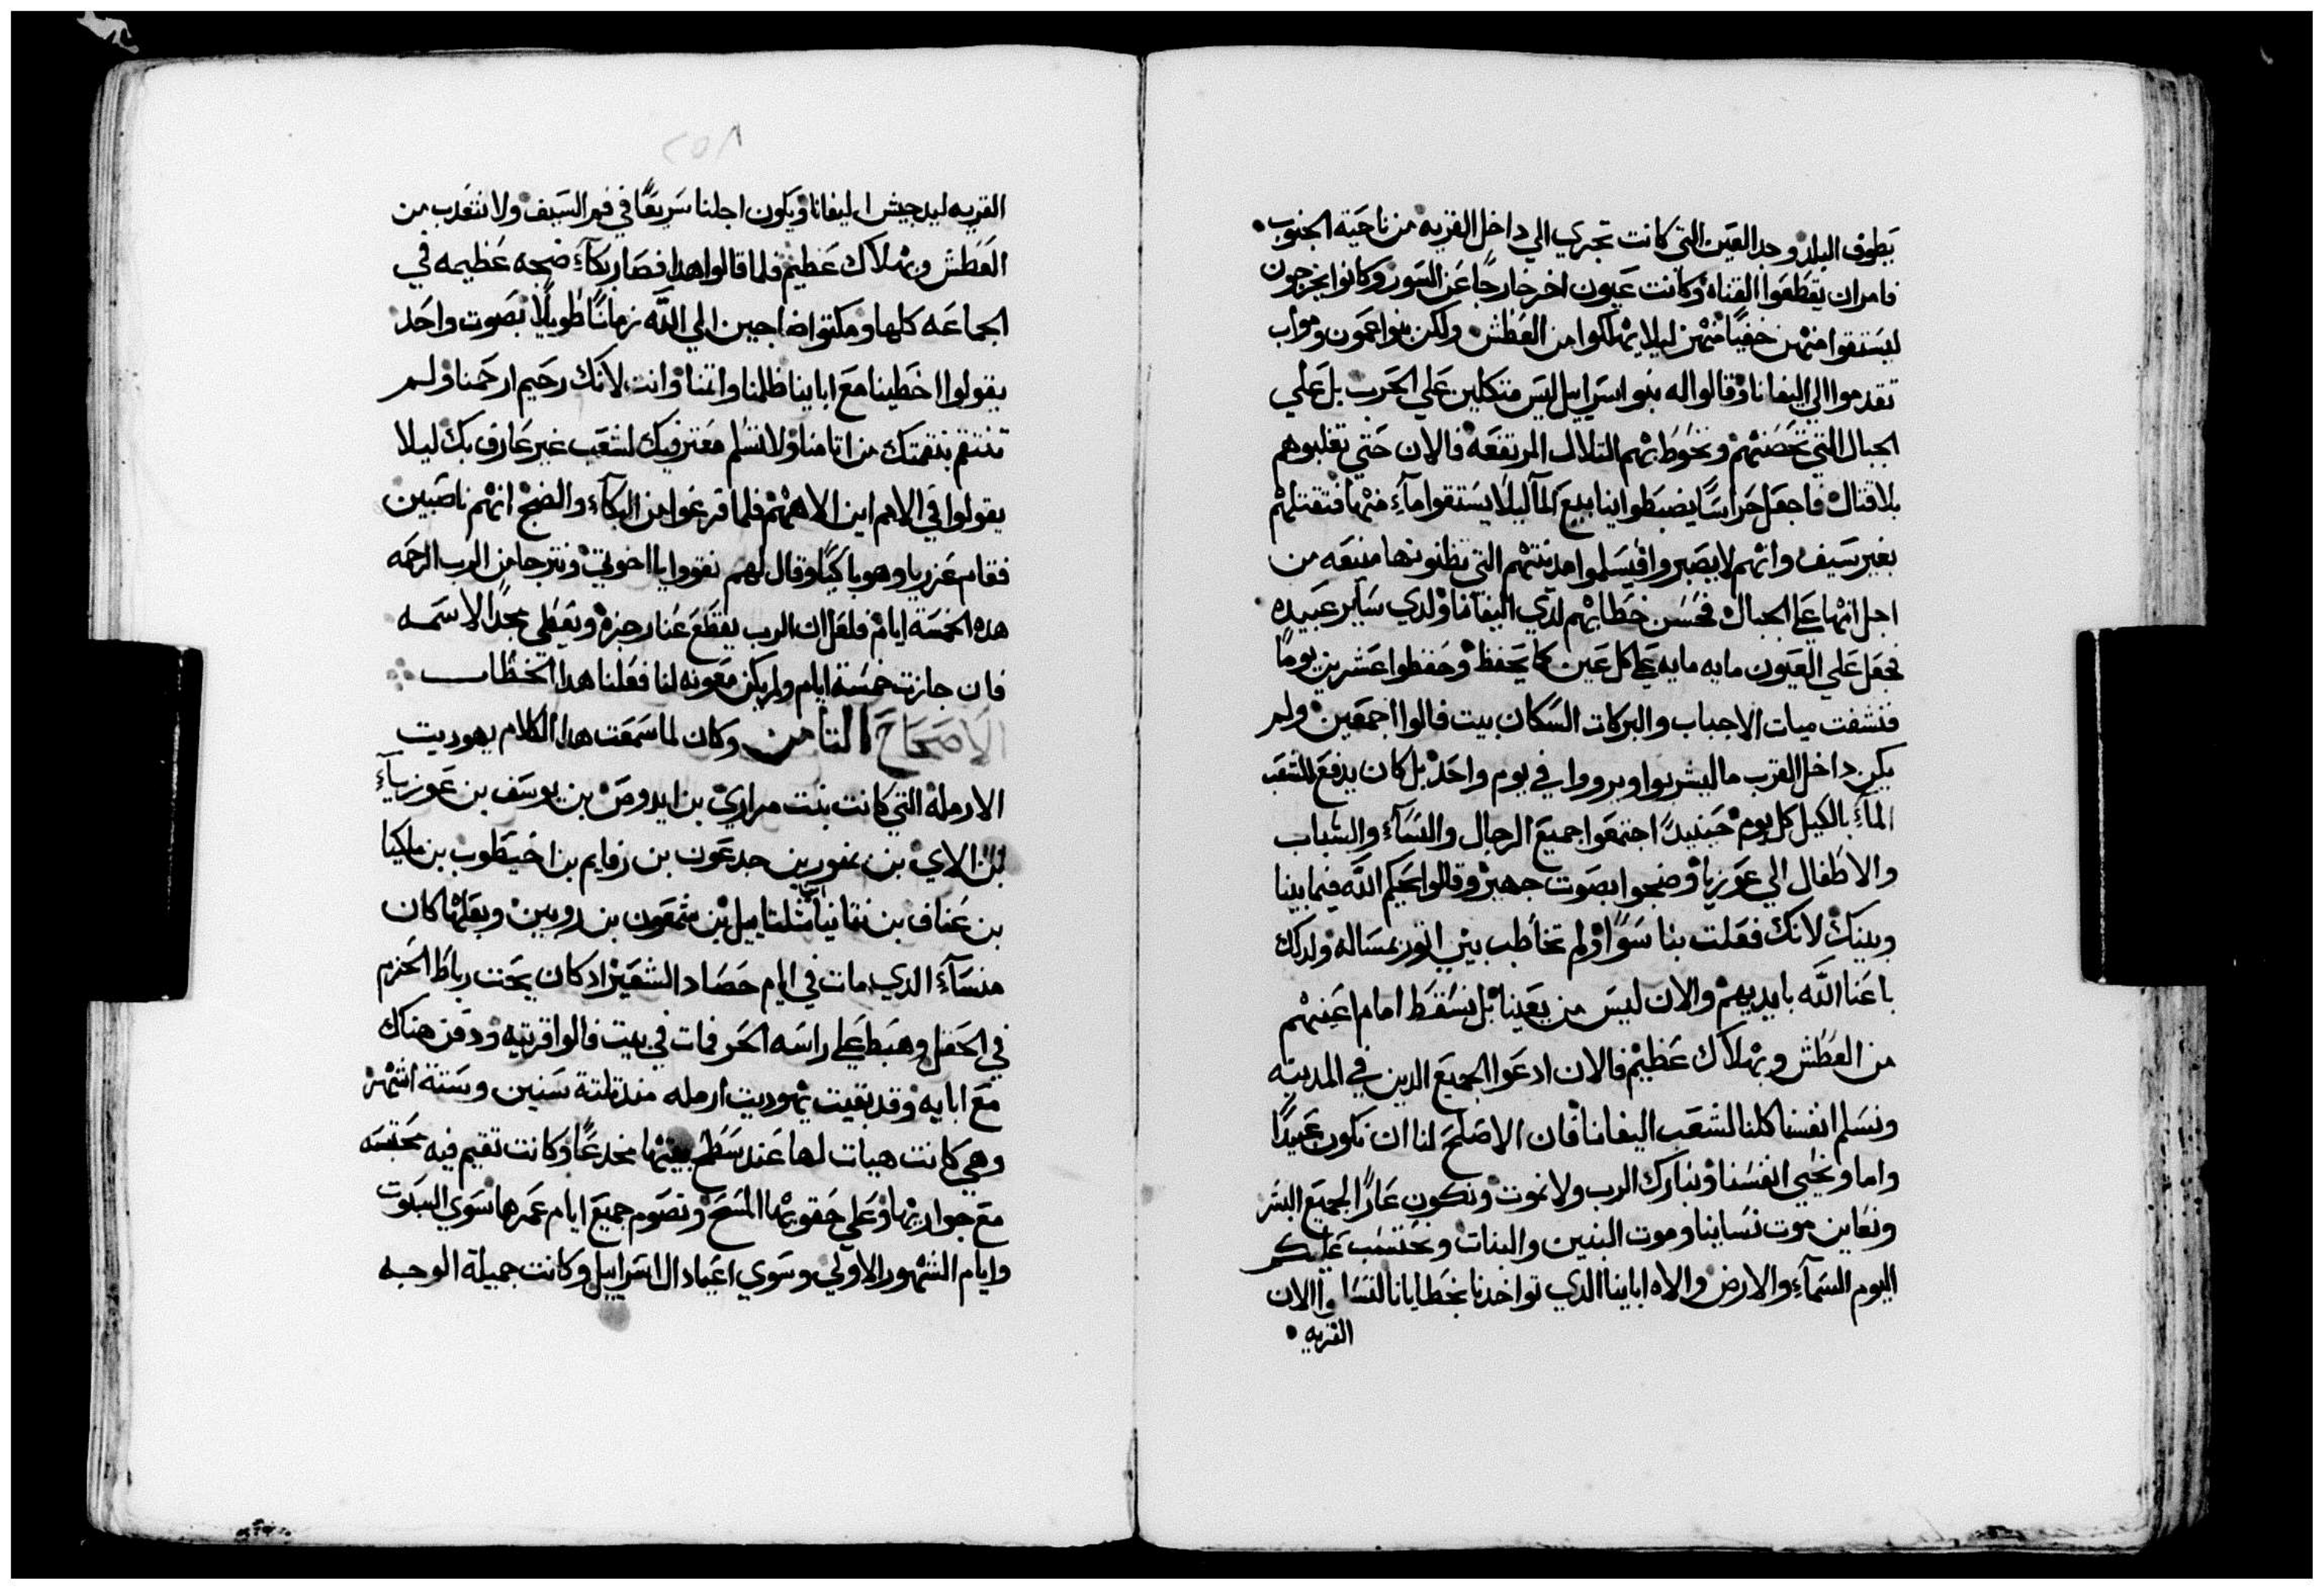 يطوف البلد وحد العين التي كانت تجري الي داخل القريه من ناحية الجنوب
فامر ان يقطعوا القناه وكانت عيون اخر خارجًا عن السور وكانوا يخرجون
ليستقوا منهن خفيًا منهن ليلا يهلكوا من العطش ولكن بنوا عمون ومواب
تقدموا الي اليفانا وقالوا له بنوا اسراييل ليس متكلين علي الحرب بل علي
الجبال التي تحصنهم وتحوط بهم التلال المرتفعه فالان حتي تغلبوهم
بلا قتال فاجعل حراسًا يضبطوا ينابيع المآ ليلا يستقوا مآء منها فتقتلهم
بغير سيف وانهم لا يصبروا فيسلموا مدينتهم التي تظنونها منيعه من
اجل انها علي الجبال فحسن خطابهم لدي اليفانا ولدي ساير عبيده
فجعل علي العيون مايه مايه علي كل عين كما يحفظ وحفظوا عشرين يومًا
فنشفت ميات الاجباب والبركات السكان بيت فالوا اجمعين ولم
يكن داخل القريه ما ليشربوا ويرووا في يوم واحد بل كان يدفع للشعب
المآء بالكيل كل يوم حينيدًا اجتمعوا جميع الرجال والنسآء والشباب
والاطفال الي عوزيا وضجوا بصوت جهير وقالوا يحكم الله فيما بيننا
وبينك لانك فعلت بنا سوًا ولم تخاطب بني اتور بمساله ولدلك
باعنا الله بايديهم والان ليس من يعيننا بل نسقط امام اعينهم
من العطش وبهلاك عظيم فالان ادعوا الجميع الدين في المدينه
ونسلم انفسنا كلنا لشعب اليفانا فان الاصلح لنا ان نكون عبيدًا
واما ونحيي انفسنا ونبارك الرب ولا نموت ونكون عارًا لجميع البشر
ونعاين موت نسانا وموت البنين والبنات ونحتسب عليكم
اليوم السمآء والارض والاه اباينا الدي تواخدنا بخطايانا والان
القريه
٢٥٨
القريه ليد جيش اليفانا ويكون اجلنا سريعًا في فم السيف ولا نتعدب من
العطش وبهلاك عظيم فلما قالوا هدا فصار بكآء ضجه عظيمه في
الجماعه كلها ومكتوا ضاجين الي الله زمانًا طويلًا بصوت واحد
يقولوا اخطينا مع اباينا ظلمنا واتمنا وانت لانك رحيم ارحمنا ولم
تنتقم بنقمتك من اتامنا ولا تسلم معترفيك لشعب غير عارف بك ليلا
يقولوا في الامم اين الاههم فلما فرغوا من البكآء والضج انهم ناصبين
فقام عزريا وهو باكيًا وقال لهم تقووا يا اخوتي ونترجا من الرب الرحمه
هده الخمسة ايام فلعل ان الرب يقطع عنا رجزه ويعطي مجدًا لاسمه
فان جازت خمسة ايام ولم يكن معونه لنا فعلنا هدا الخطاب
الاصحاح التامن وكان لما سمعت هدا الكلام يهوديت
الارمله التي كانت بنت مراري بن ايدوص بن يوسف بن عوزيآء
بن الاي بن يمنور بن جدعون بن رفايم بن اخيطوب بن ملكيا
بن عناف بن نتانيا بن شلتاييل بن شمعون بن روبين وبعلها كان
منسآء الدي مات في ايام حصاد الشعير اد كان يحت رباط الحزم
في الحقل وهبط علي راسه الحر فمات في بيت فالوا قريته ودفن هناك
مع ابايه وقد بقيت يهوديت ارمله مند تلتة سنين وستة اشهر
وهي كانت هيات لها عند سطح بيتها مخدعًا وكانت تقيم فيه محتبسه
مع جواريها وعلي حقويها المسح وتصوم جميع ايام عمرها سوي السبوت
وايام الشهور الاولي وسوي اعياد ال اسراييل وكانت جميلة الوجه